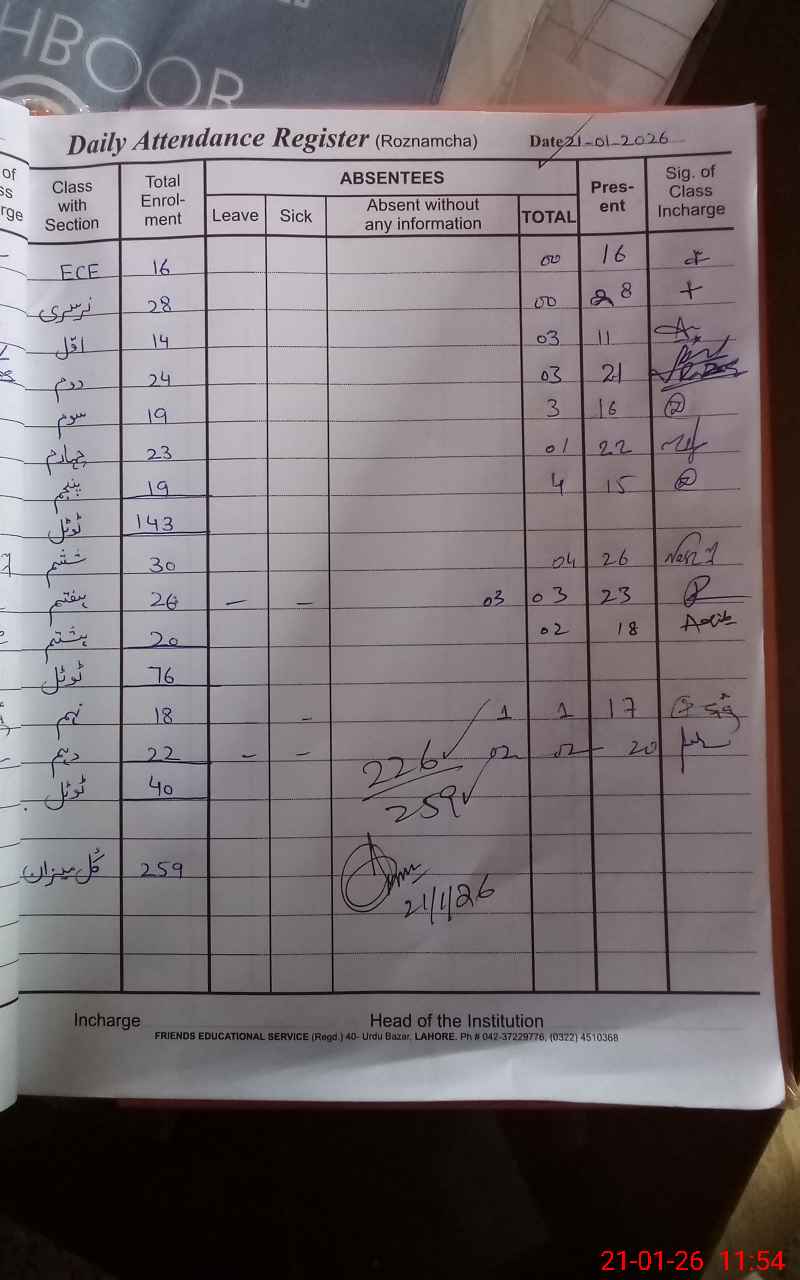 HBOOR
Daily Attendance Register (Roznamcha) Date 21-01-2026
Class with Section Total Enrol-ment ABSENTEES Pres-ent Sig. of Class Incharge
Leave Sick Absent without any information TOTAL
ECE 16 00 16
نرسری 28 00 28
اوّل 14 03 11
دوم 24 03 21
سوم 19 3 16
چہارم 23 01 22
پنجم 19 4 15
ٹوٹل 143
ششم 30 04 26
ہفتم 26 – – 03 03 23
ہشتم 20 02 18
ٹوٹل 76
نہم 18 – 1 1 17
دہم 22 – – 02 02 20
ٹوٹل 40
226
259
کُل میزان 259
21/1/26
Incharge Head of the Institution
FRIENDS EDUCATIONAL SERVICE (Regd.) 40- Urdu Bazar, LAHORE. Ph # 042-37229776, (0322) 4510368
21-01-26 11:54